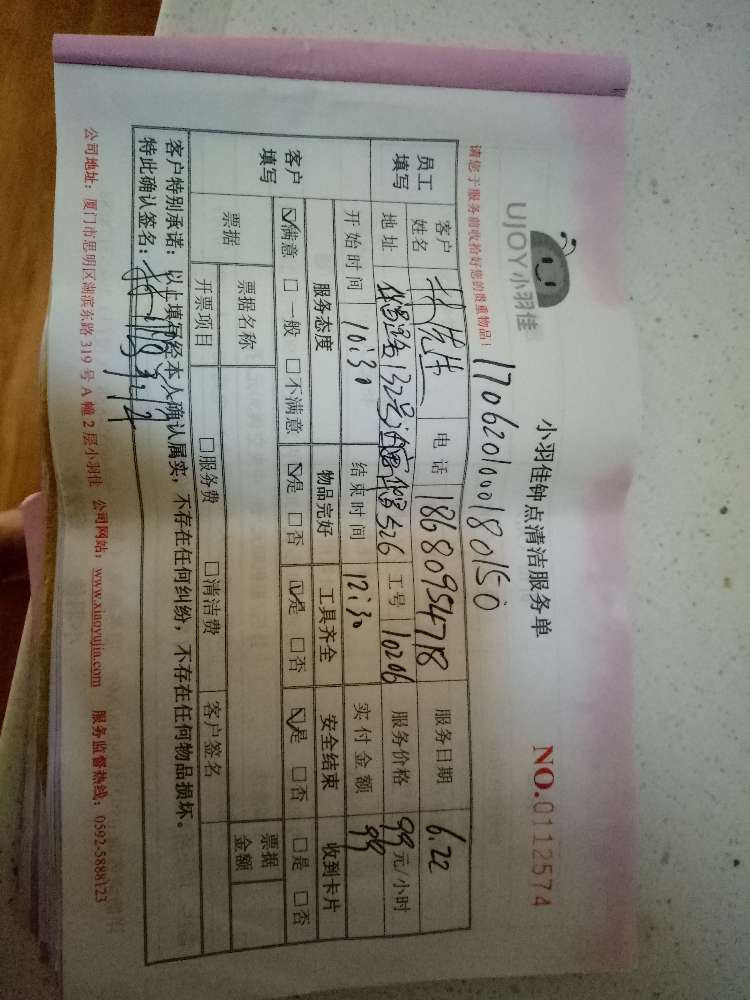 UJOY小羽佳
小羽佳钟点清洁服务单
NO.0112574
请您于服务前收拾好您的贵重物品！
1706201000180150
员工填写
客户姓名 林先生 电话 18680954718 服务日期 6.22
地址 132号 526 工号 10206 服务价格 99元/小时
开始时间 10:30 结束时间 12:30 实付金额 99
客户填写
服务态度 物品完好 工具齐全 安全结束 收到卡片
☑满意 □一般 □不满意 ☑是 □否 ☑是 □否 ☑是 □否 □是 □否
票据 票据名称 票据金额
开票项目 □服务费 □清洁费 客户签名
客户特别承诺：以上填写经本人确认属实，不存在任何纠纷，不存在任何物品损坏。
特此确认签名：
公司地址：厦门市思明区湖滨东路319号A幢2层小羽佳 公司网站：www.xiaoyujia.com 服务监督热线：0592-5888123